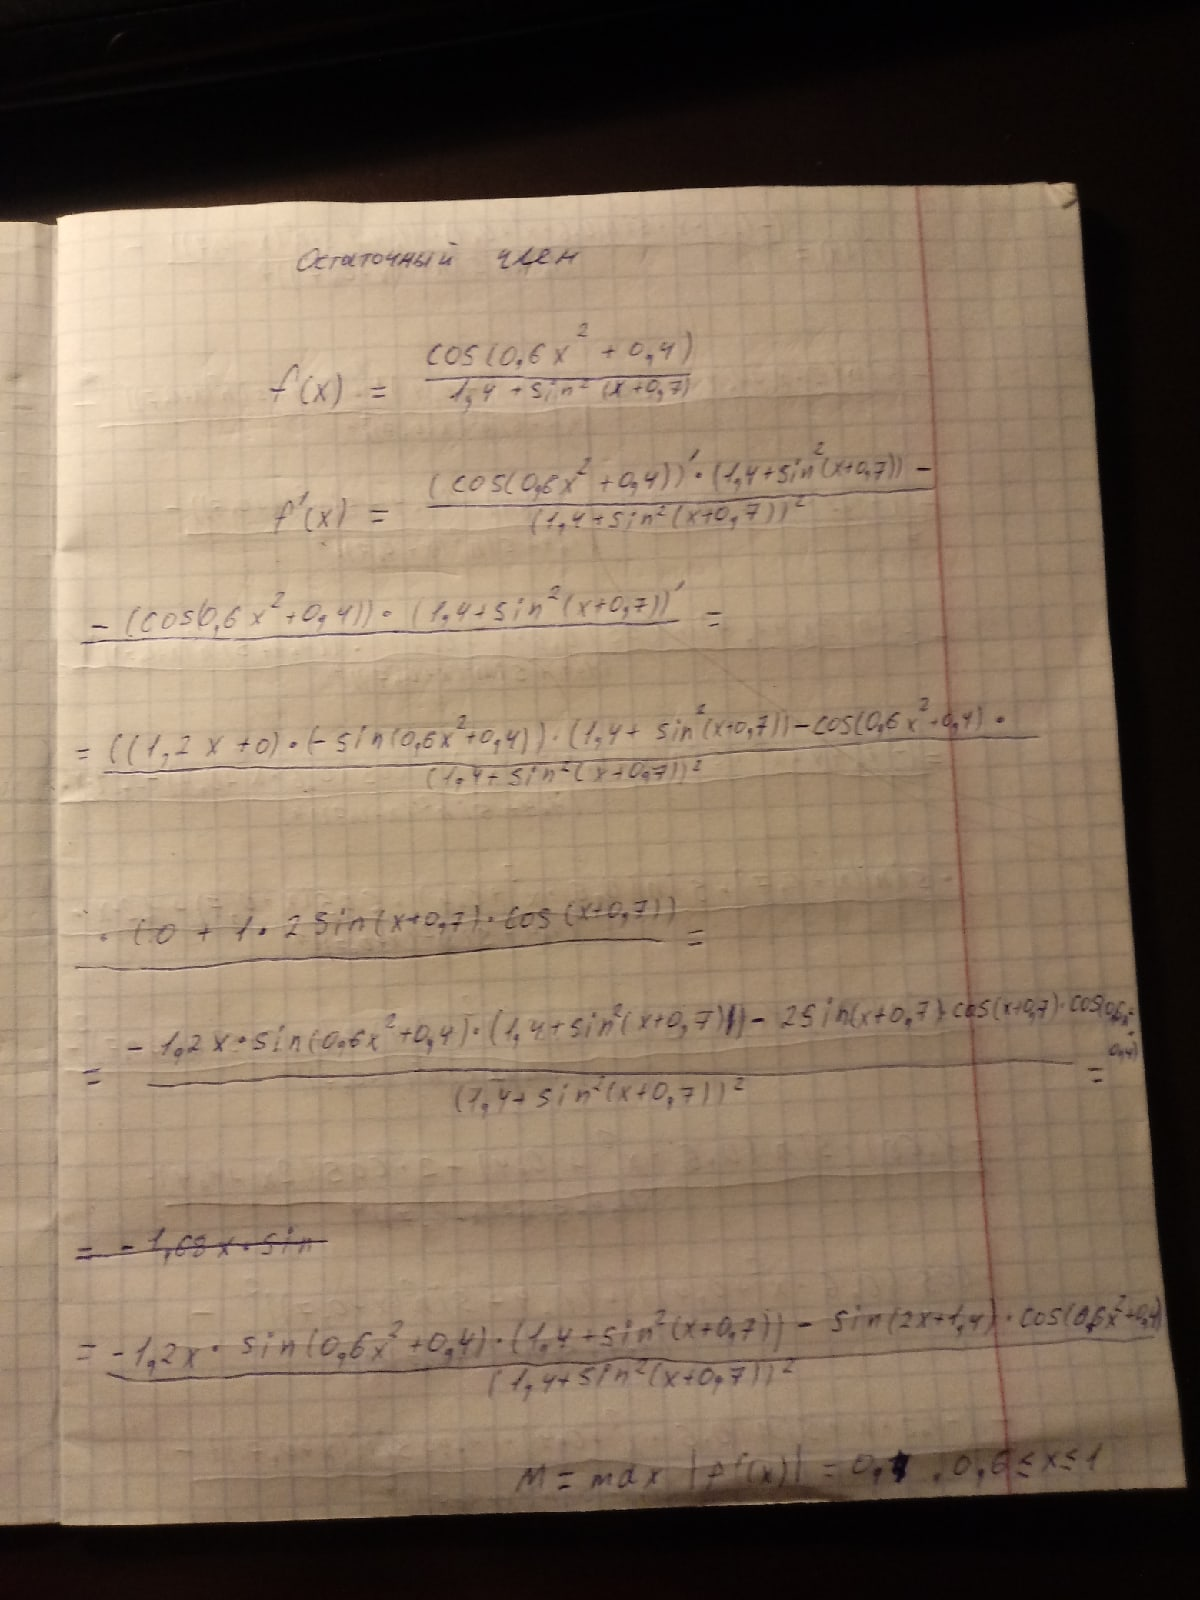 Остаточный член
f(x) = cos(0,6x² + 0,4) / 1,4 + sin² (x+0,7)
f'(x) = (cos(0,6x² + 0,4))' · (1,4 + sin²(x+0,7)) − / (1,4 + sin²(x+0,7))²
− (cos(0,6x² + 0,4)) · (1,4 + sin²(x+0,7))' =
= ((1,2x + 0) · (− sin(0,6x² + 0,4)) · (1,4 + sin²(x+0,7)) − cos(0,6x² + 0,4) · / (1,4 + sin²(x+0,7))²
· (0 + 1 · 2 sin(x+0,7) · cos(x+0,7)) =
= − 1,2x · sin(0,6x² + 0,4) · (1,4 + sin²(x+0,7)) − 2sin(x+0,7) · cos(x+0,7) · cos(0,6x² + 0,4) / (1,4 + sin²(x+0,7))² =
= − 1,68x · sin
= −1,2x · sin(0,6x² + 0,4) · (1,4 + sin²(x+0,7)) − sin(2x+1,4) · cos(0,6x² + 0,4) / (1,4 + sin²(x+0,7))²
M = max |f'(x)| = 0, , 0,6 ≤ x ≤ 1